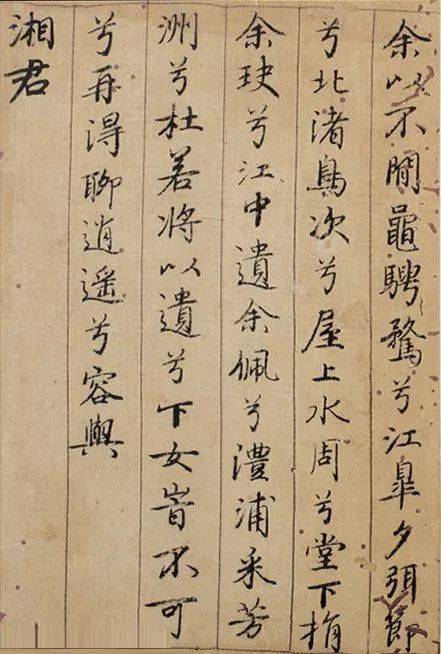 余以不閒鼂騁騖兮江皋夕弭節
兮北渚鳥次兮屋上水周兮堂下捐
余玦兮江中遺余佩兮澧浦采芳
洲兮杜若将以遺兮下女旹不可
兮再得聊逍遥兮容與
湘君